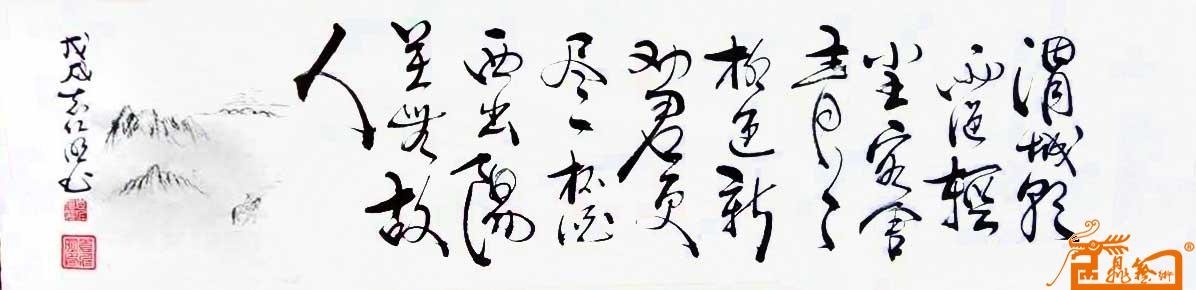 渭城朝
雨浥輕
尘客舍
青々
柳色新
劝君更
尽一杯酒
西出陽
关無故
人
戊戌